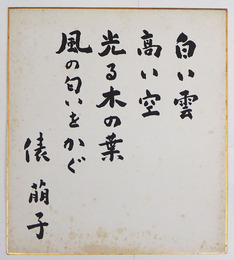 白い雲
高い空
光る木の葉
風の匂いをかぐ
俵萠子